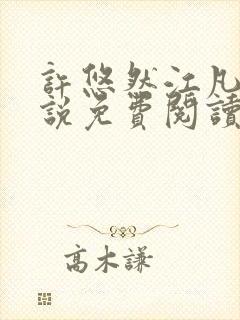 許悠然江凡
說免費閱讀
高木謙